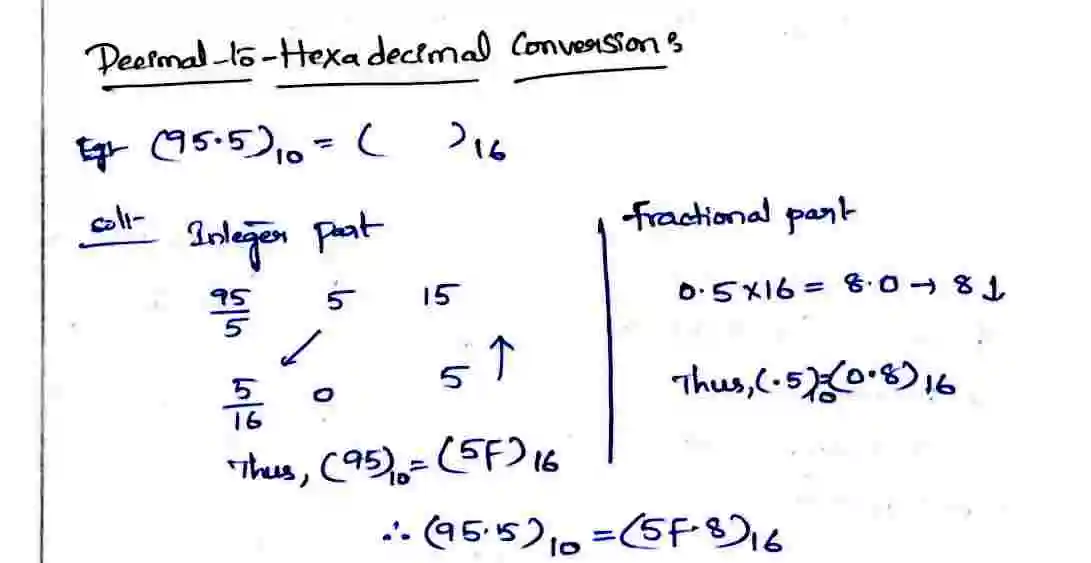 Decimal-to-Hexadecimal Conversions
Eg:- (95.5)10 = ( )16
sol:- Integer part
95/5 5 15
5/16 0 5 ↑
Thus, (95)10 = (5F)16
fractional part
0.5×16 = 8.0 → 8 ↓
Thus, (.5)10 = (0.8)16
∴ (95.5)10 = (5F.8)16